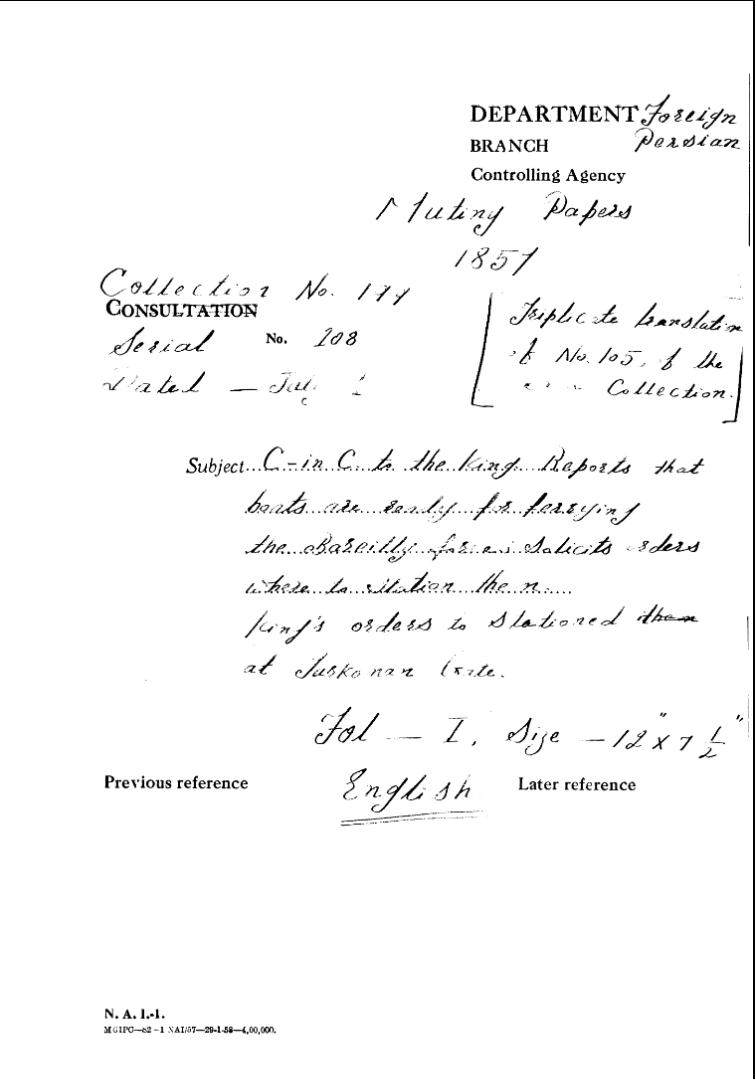 DEPARTMENT Foreign
BRANCH Persian
Controlling Agency
Mutiny Papers
1857
Collection No. 199
CONSULTATION
Serial No. 108
Dated — July
[Triplicate translation
of No. 105, of the
Collection.]
Subject... C-in C. to the King. Reports that
boats are ready for ferrying
the Bareilly forces. Solicits orders
where to station the
King's orders to Stationed them
at Turkoman Gate.
Fol — I. Size — 12" x 7 1/2"
Previous reference English Later reference
N. A. I.-1.
MGIPC—82—1 NAI/57—29-1-58—4,00,000.